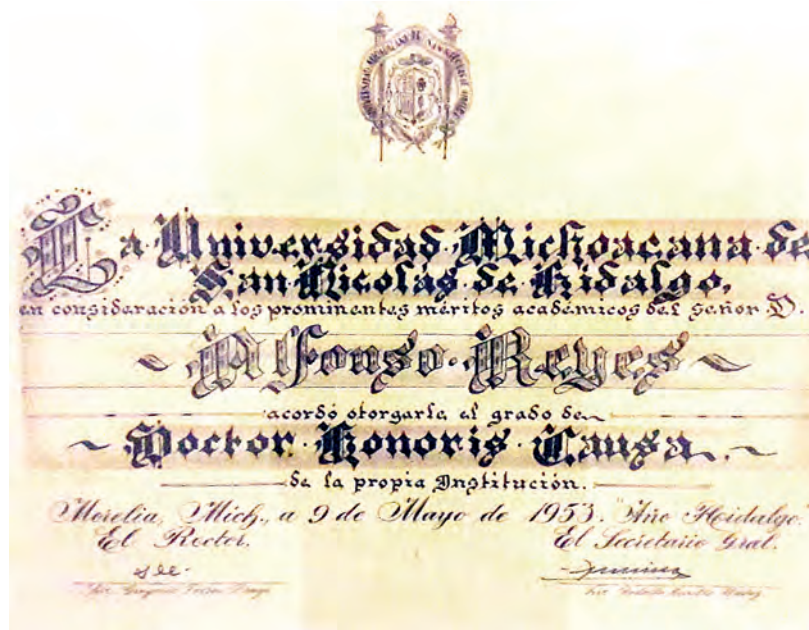 La Universidad Michoacana de
San Nicolás de Hidalgo,
en consideración a los prominentes méritos académicos del señor D.
Alfonso Reyes
acordó otorgarle el grado de
Doctor Honoris Causa
de la propia Institución.
Morelia, Mich., a 9 de Mayo de 1953. "Año Hidalgo."
El Rector.
El Secretario Gral.